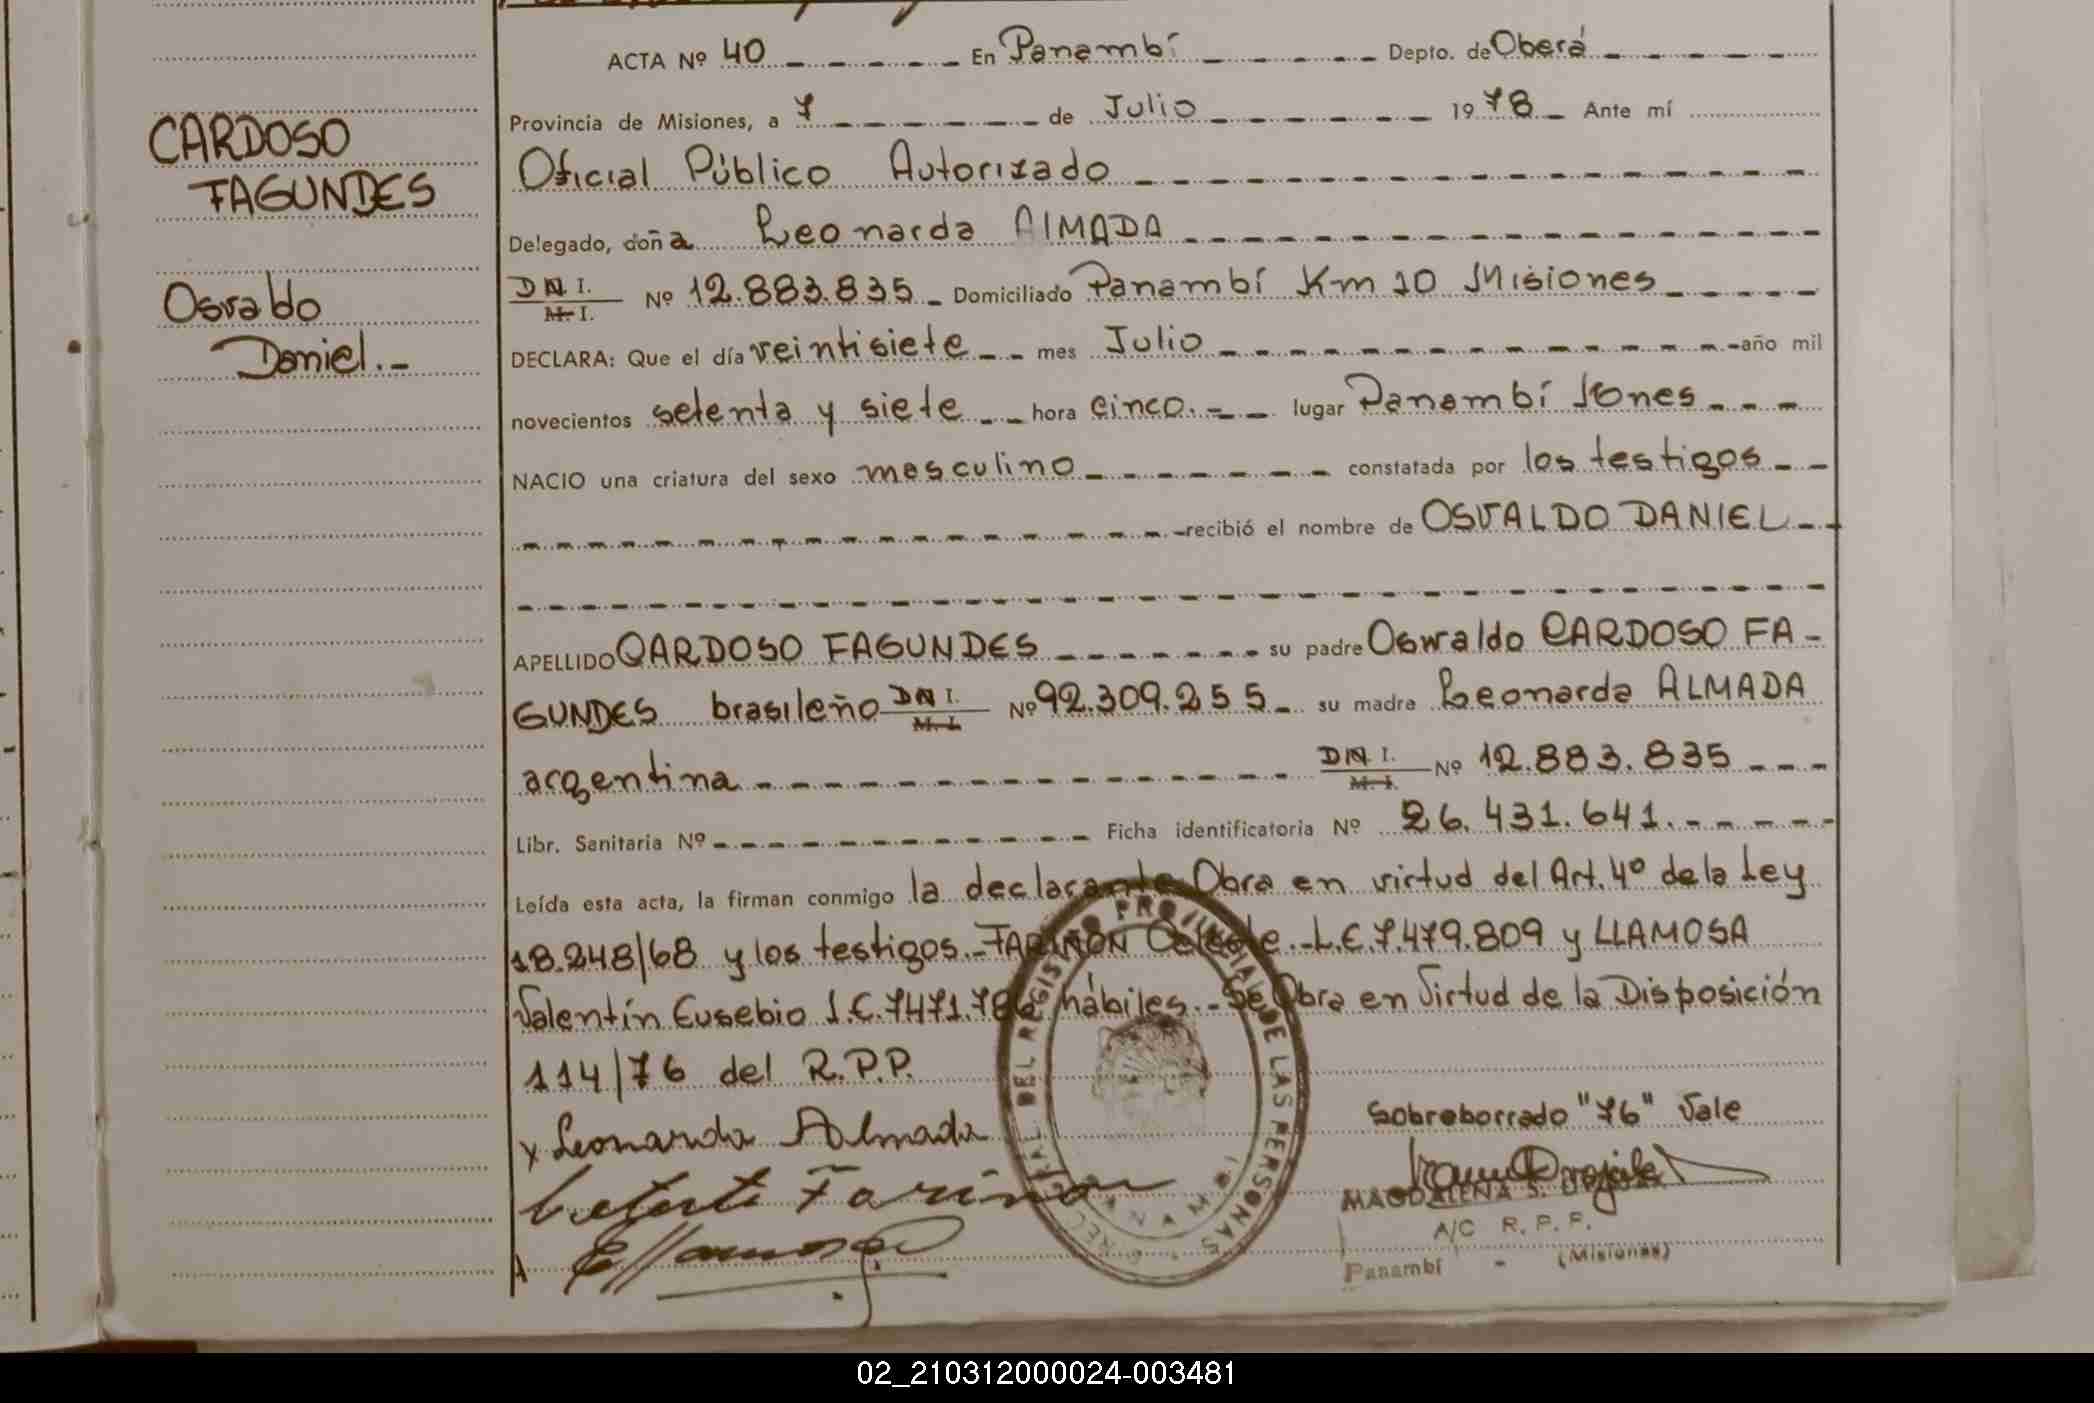 CARDOSO
FAGUNDES
Osvaldo
Daniel.-
ACTA Nº 40 En Panambí Depto. de Oberá
Provincia de Misiones, a 7 de Julio 1978 Ante mí
Oficial Público Autorizado
Delegado, doña Leonarda AlMADA
DNI. M.I. Nº 12.883.835 Domiciliado Panambí Km 10 Misiones
DECLARA: Que el día veintisiete mes Julio año mil
novecientos setenta y siete hora cinco.- lugar Panambí Mnes
NACIO una criatura del sexo masculino constatada por los testigos
recibió el nombre de OSVALDO DANIEL
APELLIDO CARDOSO FAGUNDES su padre Oswaldo CARDOSO FA-
GUNDES brasileño DNI. M.I. Nº 92.309.255 su madre Leonarda ALMADA
argentina DNI. M.I. Nº 12.883.835
Libr. Sanitaria Nº Ficha identificatoria Nº 26.431.641.
Leída esta acta, la firman conmigo la declarante Obra en virtud del Art. 4º de la Ley
18.248/68 y los testigos.- FARIÑON Celeste.- L.E. 7.479.809 y LLAMOSA
Valentín Eusebio L.E. 7471.786 hábiles.- Se Obra en Virtud de la Disposición
114/76 del R.P.P.
Sobreborrado "76" Vale
x Leonarda Almada
MAGDALENA S.
A/C R.P.P.
Panambí - (Misiones)
DEL REGISTRO PROVINCIAL DE LAS PERSONAS
02_210312000024-003481